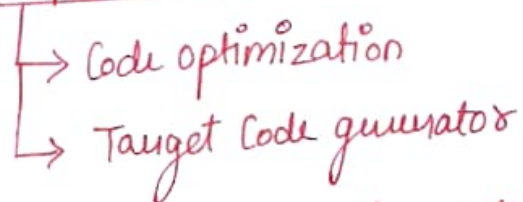 → Code optimization
→ Target Code generator